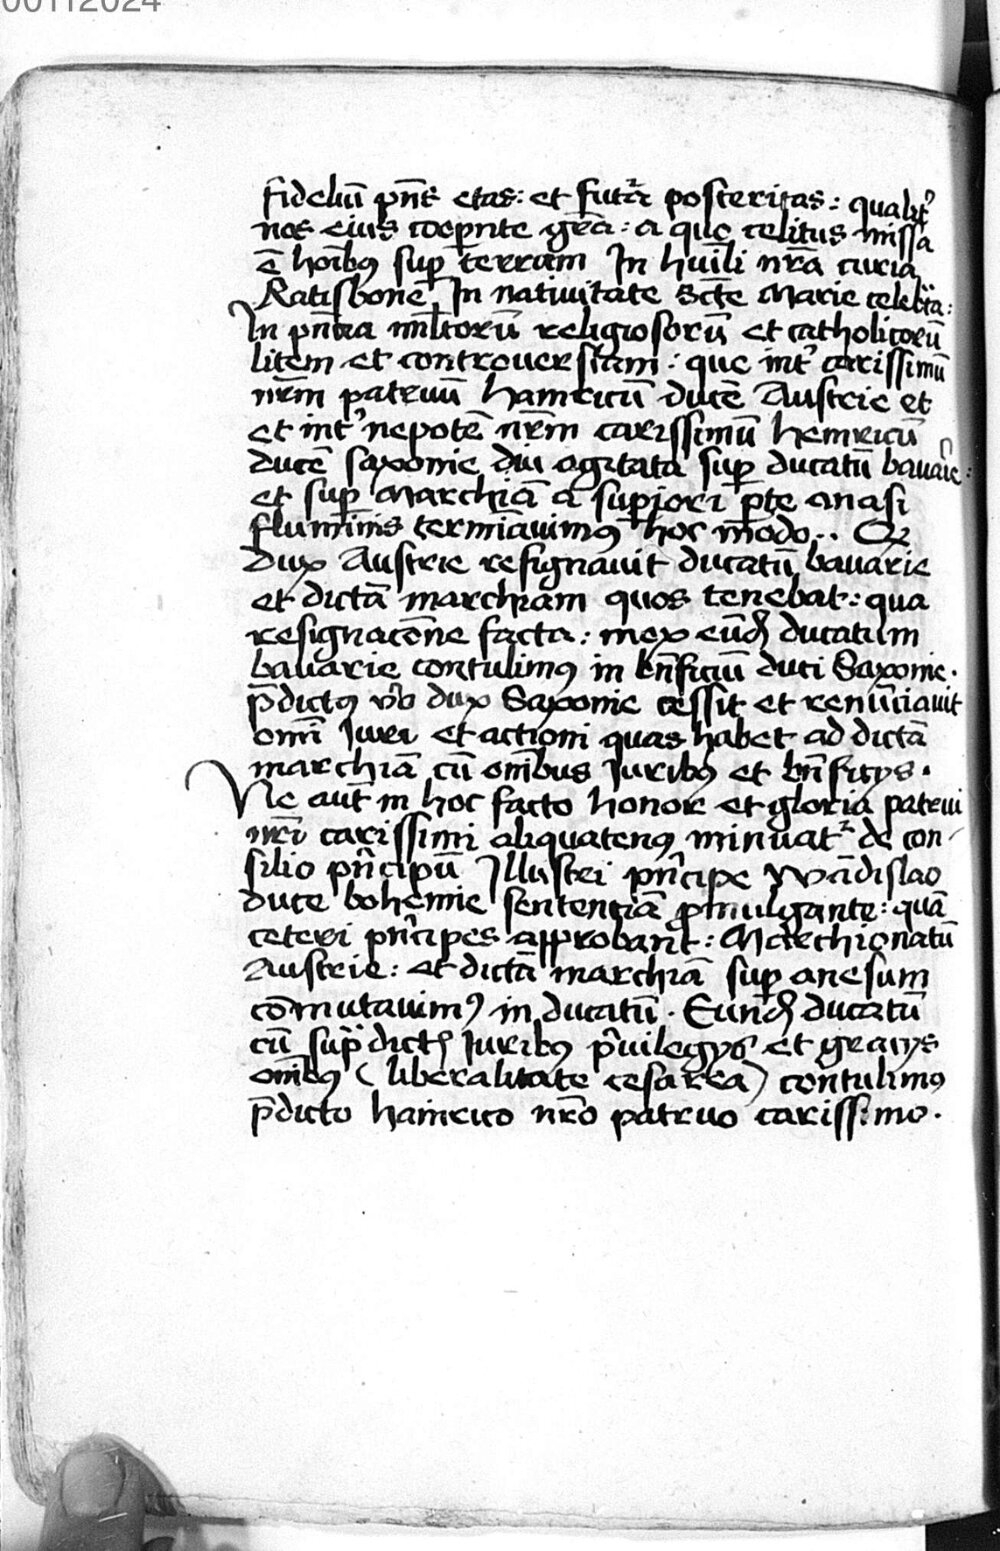 00112024
fideliū pn̄s etas: et futur̄ posteritas: qualit᷒
nos eius cooꝑnte gr̄a: a quo celitus missa
ē hoībꝫ suꝑ terram In huīli nr̄a curia
Ratisbone In natiuitate Scte Marie celebͣta:
In pn̄tia multorū religiosorū et catholicorū
litem et controuersiam: que int᷒ carissimū
nrm̄ patruū hainricū ducē Austrie et
et int᷒ nepotē nrm̄ carissimū heinricū
ducē saxonie diu agitata suꝑ ducatū bauarie:
et suꝑ Marchiā a suꝑiori ꝑte anasi
fluminis terminauimꝫ hoc modo.. Qꝫ
dux Austrie resignauit ducatū bauarie
et dictā marchiam quos tenebat: qua
resignacōne facta: mox eūdꝫ ducatum
bauarie contulimꝫ in bn̄ficiū duci Saxonie.
p̄dictꝫ v̊o dux Saxonie cessit et renūciauit
omī Iuri et actioni quas habet ad dictā
marchiā cū omībus Iuribꝫ et bn̄ficys.
Ne aut̄ in hoc facto honor et gloria patrui
nrī carissimi aliquatenꝫ minuatᷣ de con-
silio pn̄cipū Illustri pn̄cipe Wādislao
duce bohemie sentenciā ꝓmulgante: quā
ceteri pn̄cipes approbant: Marchionatū
Austrie: et dictā marchiā suꝑ anesum
cōmutauimꝫ in ducatū. Eundꝫ ducatū
cū supᷓdictꝭ Iuribꝫ pͥuilegys et graciis
omībꝫ (liberalitate cesarea) contulimꝫ
p̄dicto hainrico nr̄o patruo carissimo.